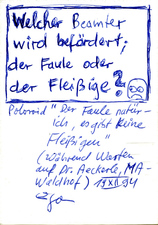 Welcher Beamter
wird befördert;
der Faule oder
der Fleißige?
Polonid "Der Faule natür-
lich, es gibt keine
Fleißigen"
(Während Warten
auf Dr. Aeckerle, MA-
Waldhof) 17XII94